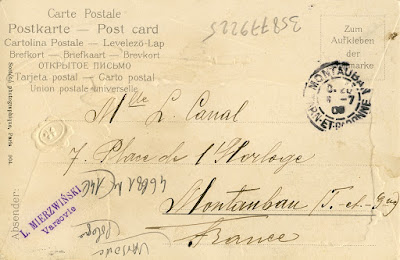 Carte Postale
Postkarte — Post card
Cartolina Postale — Levelező-Lap
Brefkort — Briefkaart — Brevkort
ОТКРЫТОЕ ПИСЬМО
Tarjeta postal — Carto postal
Union postale universelle
358779225
Zum
Aufkleben
der
marke
MONTAUBAN
6 -7
09
RN-ET-GARONNE
Mlle L. Canal
7. Place de l'Horloge
Montauban (T.-et-G.)
France
Absender:
L. MIERZWIŃSKI
Varsovie
Varsovie
Pologne